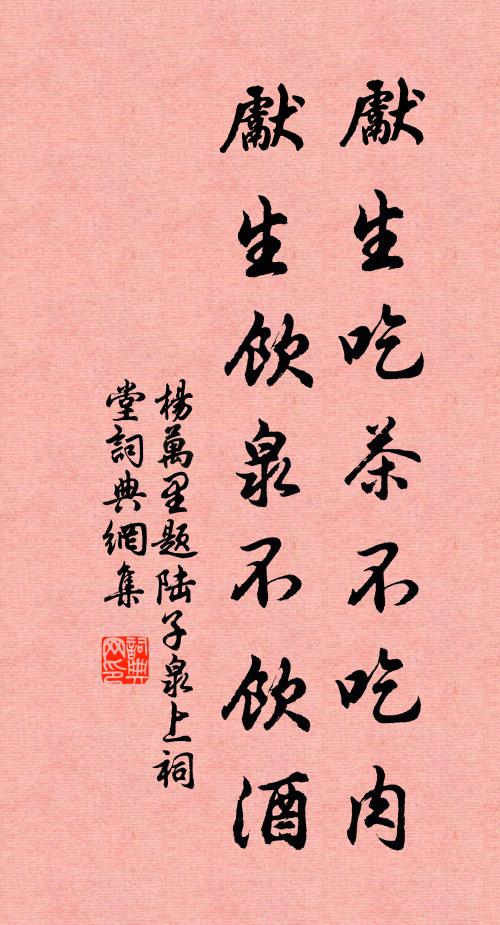 獻生吃茶不吃肉
獻生飲泉不飲酒
楊萬里题陆子泉上祠
堂詞典網集
詞典
网印